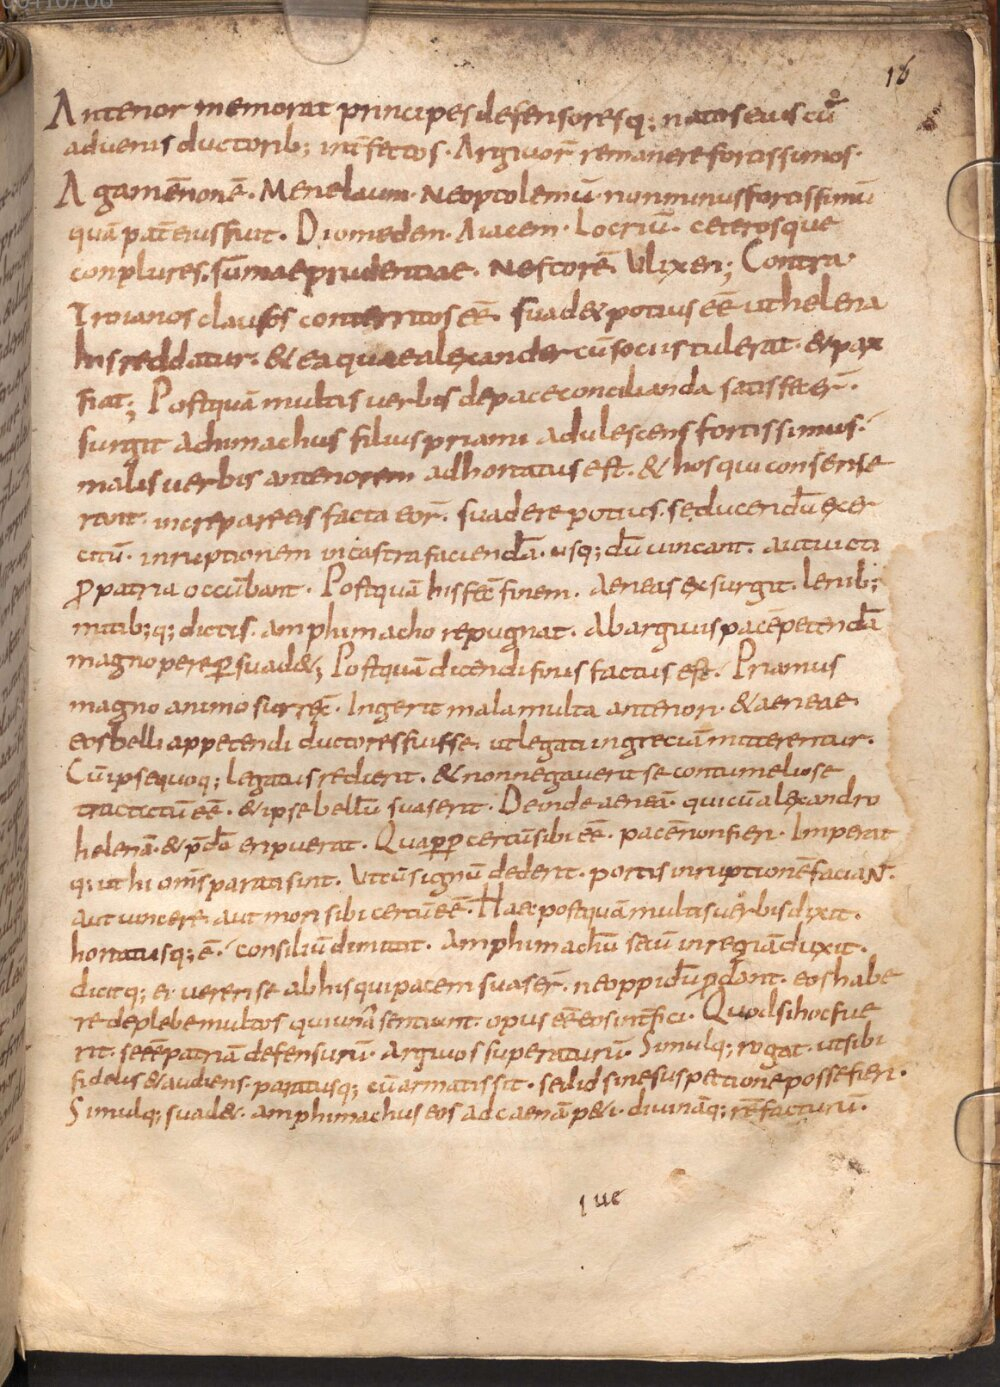 16
Antenor memorat principes defensoresq; natos eius cū
advenis ductorib; int̄fectos. Argivor̄ remanere fortissimos.
Agamēnonē. Menelaum. Neoptolemū. non minus fortissimū
quā pat̄ eius fuit. Diomeden. Aiacem. Locriū. ceterosque
conplures. sūmae prudentiae. Nestorē. Ulixen; Contra
Troianos clausos conterritos eē. suad& potius eē ut helena
his reddatur. & ea quae alexander cū sociis tulerat. & pax
fiat; Postquā multis verbis de pace concilianda satis fecer̄.
surgit Achimachus filius priami adulescens fortissimus.
malis verbis antenorem adhortatus est. & hos qui consense
runt. increpare eis facta eor̄. suadere potius. seducendū exer
citū. inruptionem in castra faciendā. usq; dū vincant. aut victi
p̄ patria occūbant. Postquā his fec̄ finem. Aeneas exsurgit. lenib;
mitib;q; dictis. Amphimacho repugnat. Ab argivis pacē petendā
magnopere p̄suad&; Postquā dicendi finis factus est. Priamus
magno animo surrex̄. Ingerit mala multa antenori. & aeneae
eos belli appetendi ductores fuisse. ut legati in greciā mitterentur.
Cū ipse quoq; legatus redierit. & non negaverit se contumeliose
tractatū eē. & ipse bellū suaserit. Deinde aeneā. qui cū alexandro
helenā. & p̄dā eripuerat. Quap̄p̄ certū sibi eē. pacē non fieri. Imperat
q; uti hi om̄s parati sint. Ut cū signū dederit. portis inruptionē faciaN̄.
aut vincere. aut mori sibi certū eē. Haec postquā multis verbis dixit.
hortatusq; ē. consiliū dimittit. Amphimachū secū in regiā duxit.
dicitq; ei vereri se ab his qui pacem suaser̄. ne oppidū p̄dant. eos habe
re de plebe multos qui unā sentiunt. opus eē eos int̄fici. Quod si hoc fue
rit. se eē patriā defensurū. Argivos superaturū. Simulq; rogat. ut sibi
fidelis & audiens. paratusq; cū armatis sit. sed id sine suspetione posse fieri.
Simulq; suad&. amphimachus eos ad caenā p&i. divināq; rē facturū.
que